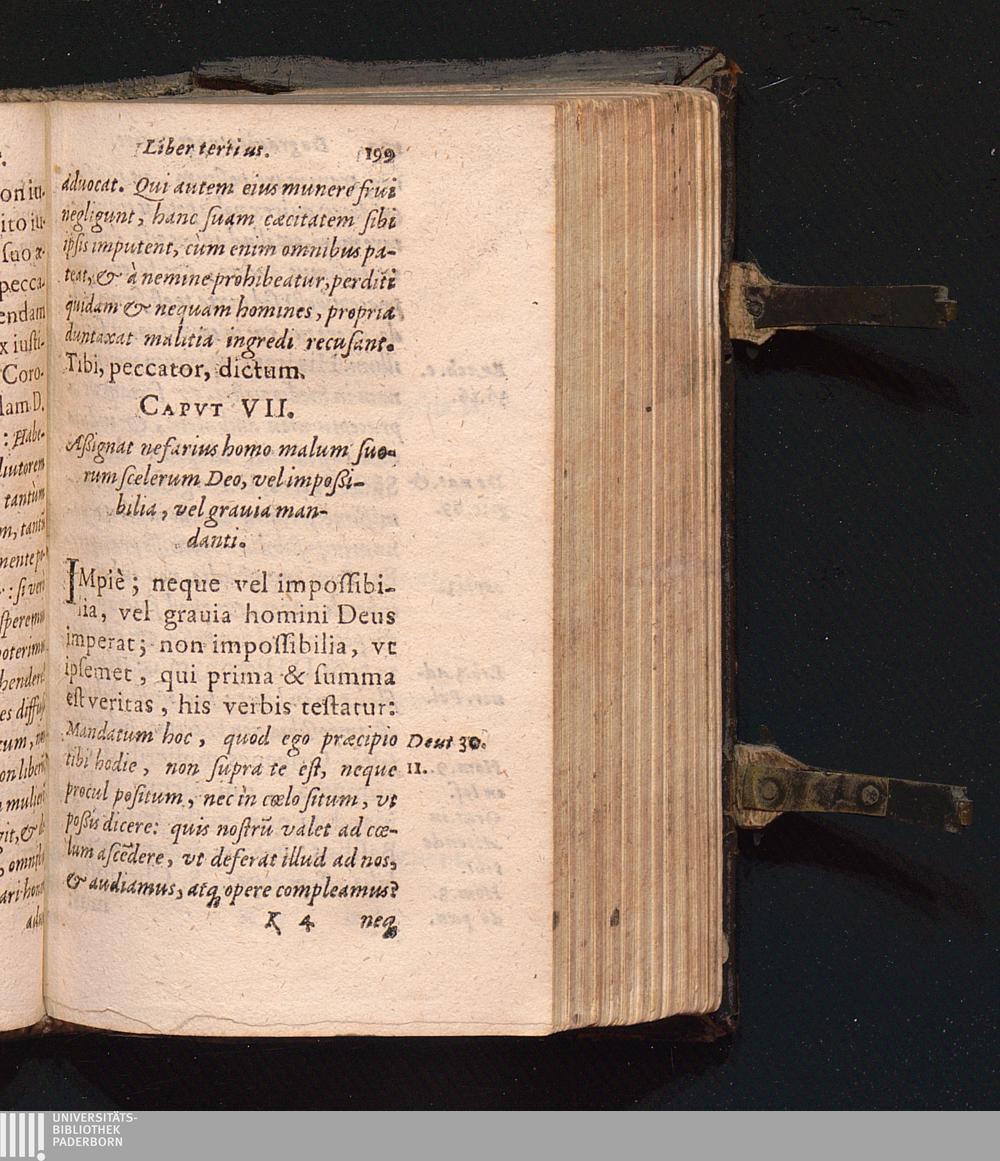 Liber tertius. 199
aduocat. Qui autem eius munere frui
negligunt, hanc suam cæcitatem sibi
ipsis imputent, cùm enim omnibus pa-
teat, & à nemine prohibeatur, perditi
quidam & nequam homines, propria
duntaxat malitia ingredi recusant.
Tibi, peccator, dictum.
CAPVT VII.
Aßignat nefarius homo malum suo-
rum scelerum Deo, vel impoßi-
bilia, vel grauia man-
danti.
IMpiè; neque vel impossibi-
lia, vel grauia homini Deus
imperat; non impossibilia, vt
ipsemet, qui prima & summa
est veritas, his verbis testatur:
Mandatum hoc, quod ego præcipio
tibi hodie, non supra te est, neque
procul positum, nec in cœlo situm, vt
poßis dicere: quis nostrū valet ad cœ-
lum ascēdere, vt deferat illud ad nos,
& audiamus, atq; opere compleamus?
K 4 neq;
Deut 30.
11.
on iu-
ito iu-
suo a-
pecca-
endam
x iusti-
Coro-
lam D.
: Habe-
liutorem
tantùm
m, tantū
mente po-
: si verò
speremus
poterimus
henderē
es diffu
tum, ne
on liber
mulier
git, & d
omnib
ari hon
UNIVERSITÄTS-
BIBLIOTHEK
PADERBORN